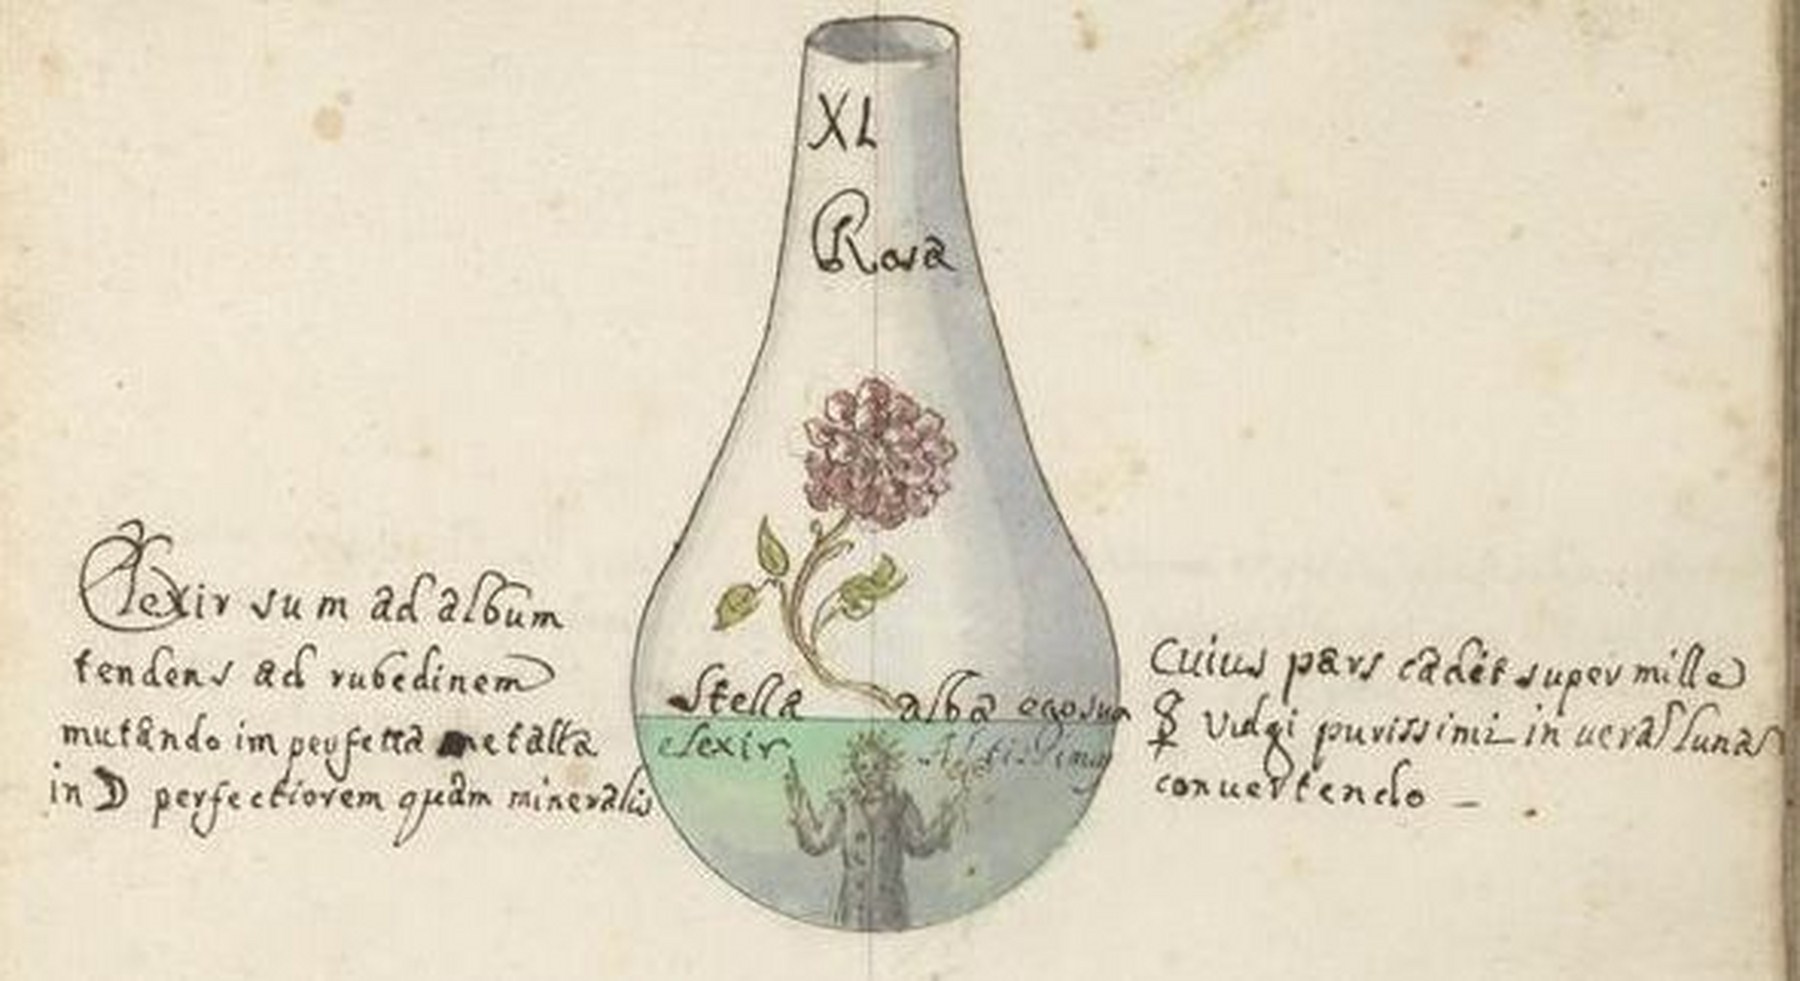 XL
Rosa
Elexir sum ad album
tendens ad rubedinem
mutando imperfetta metalla
in ☽ perfectiorem quam mineralis
Stella alba ego sum
elexir
Cuius pars cadet super mille
☿ vulgi purissimi in ueraʃ lunaʃ
conuertendo